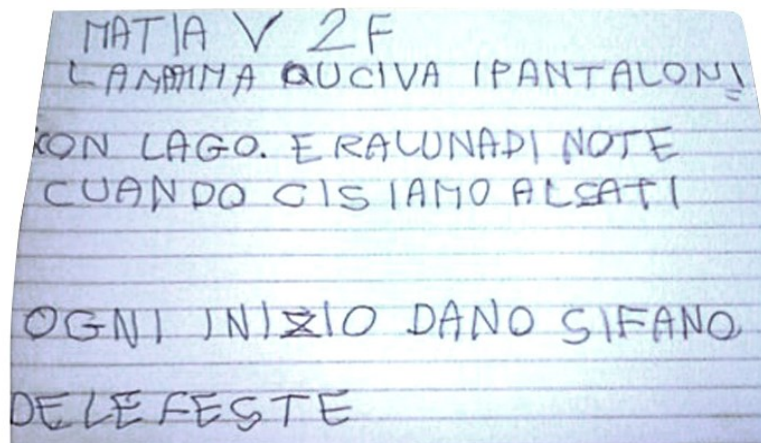 MATIA V 2F
LAMMMA QUCIVA IPANTALONI
CON LAGO. ERALUNADI NOTE
CUANDO CISIAMO ALSATI
OGNI INIZIO DANO SIFANO
DELEFESTE